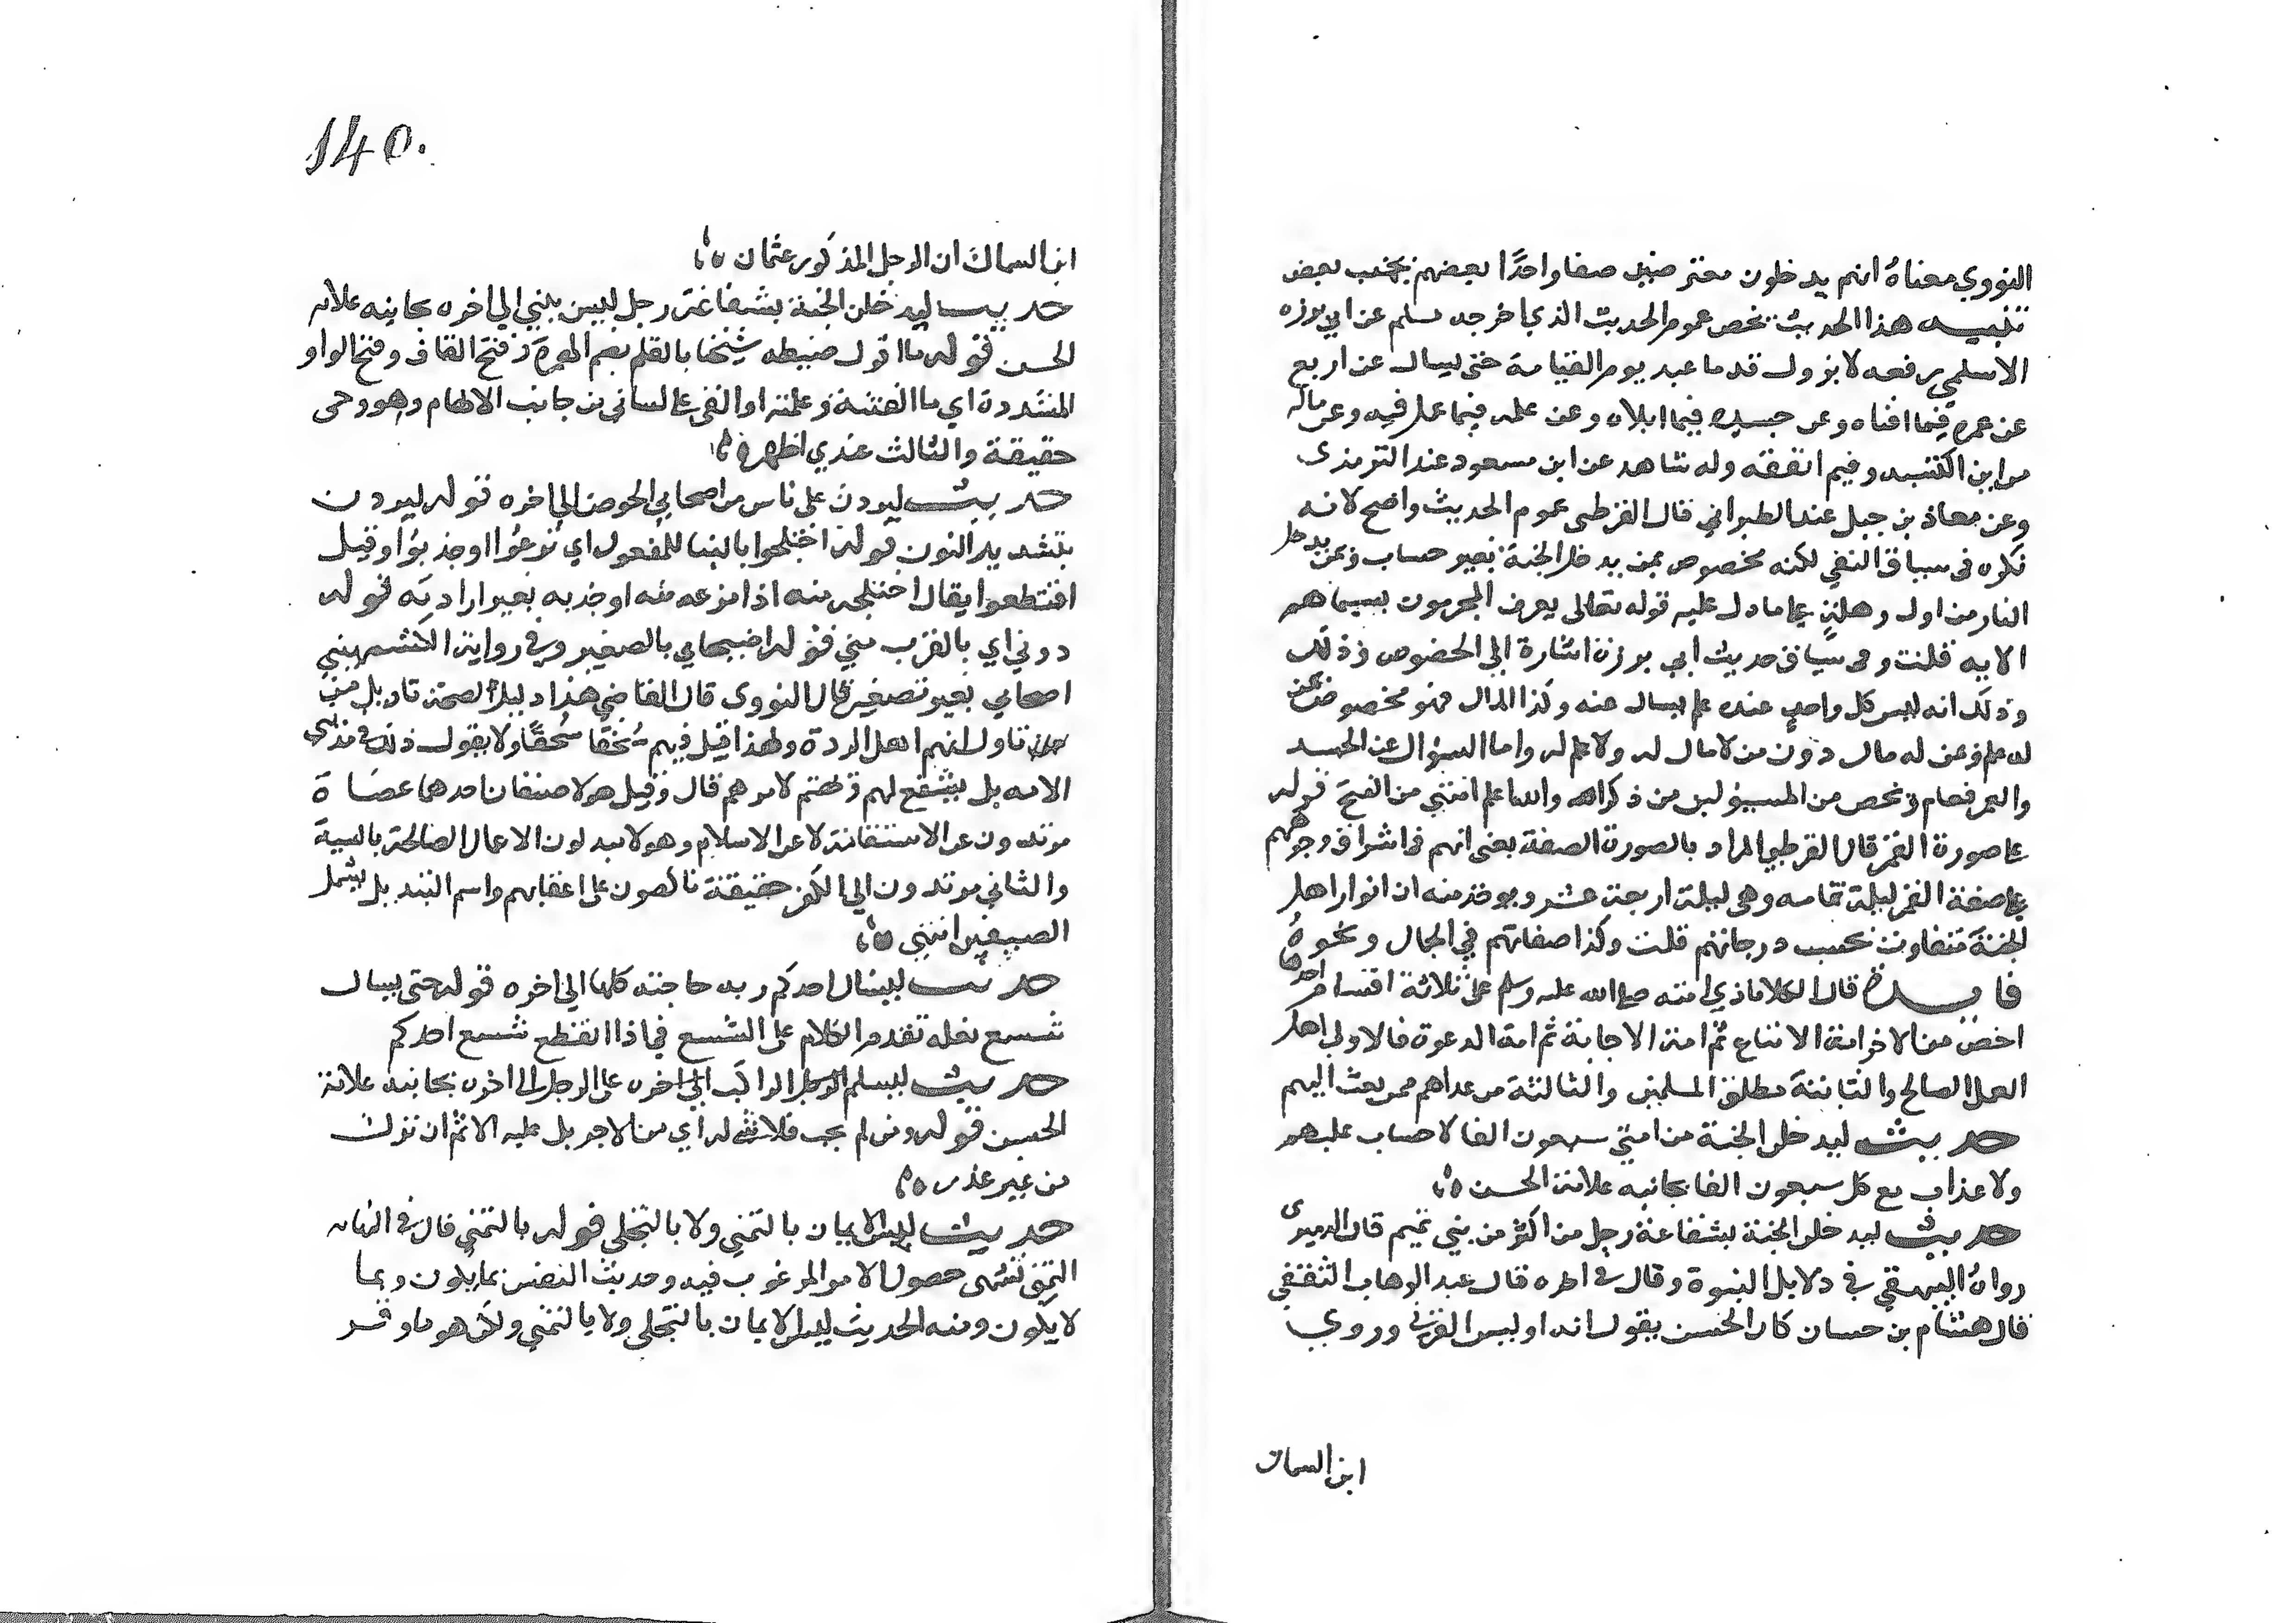 النووي معناه انهم يدخلون معترضين صفا واحدًا بعضهم بجنب بعض
تنبيه هذا الحديث يخص عموم الحديث الذي اخرجه مسلم عن ابي برزه
الاسلمي رفعه لا تزول قدما عبد يوم القيامة حتى يسال عن اربع
عن عمره فيما افناه وعن جسده فيما ابلاه وعن علمه فيما عمل فيه وعن ماله
من اين اكتسبه وفيم انفقه وله شاهد عن ابن مسعود عند الترمذي
وعن معاذ بن جبل عند الطبراني قال القرطبي عموم الحديث واضح لانه
نكره في سياق النفي لكنه مخصوص بمن يدخل الجنة بغير حساب وبمن يدخل
النار من اول وهلة على ما دل عليه قوله تعالى يعرف المجرمون بسيماهم
الايه قلت وفي سياق حديث ابي برزة اشارة الي الخصوص وذلك
وذلك انه ليس كل واحد عنده علم يسال عنه وكذا المال فهو مخصوص بمن
له علم وبمن له مال دون من لا مال له ولا علم له واما السؤال عن الجسد
والعمر فعام ويخص من المسيولين من ذكر الله والله اعلم انتهي من الفتح قوله
على صورة القمر قال القرطبي المراد بالصورة الصفة يعني انهم في اشراق وجوههم
على صفة القمر ليلة تمامه وهي ليلة اربعة عشر ويوخذ منه ان انوار اهل
الجنة تتفاوت بحسب درجاتهم قلت وكذا صفاتهم في الجمال ونحوه
فايدة قال الكلاباذي امته صلى الله عليه وسلم على ثلاثة اقسام احدها
اخص من الاخر امة الاتباع ثم امة الاجابة ثم امة الدعوة فالاولي اهل
العمل الصالح والثانية مطلق المسلمين والثالثة من عداهم ممن بعث اليهم
حديث ليدخلن الجنة من امتي سبعون الفا لا حساب عليهم
ولا عذاب مع كل سبعون الفا بجانبه علامة الحسن
حديث ليدخلن الجنة بشفاعة رجل من اكثر من بني تميم قال الدميري
رواه البيهقي في دلايل النبوة وقال في اخره قال عبد الوهاب الثقفي
قال هشام بن حسان كان الحسن يقول انه اويس القرني وروي
ابن السماك
140.
ابن السماك ان الرجل المذكور عثمان
حديث ليدخلن الجنة بشفاعة رجل ليس بنبي الي اخره بجانبه علامة
الحسن قوله ما اقول ضبطه شيخنا بالقلم بضم الهمزة وفتح القاف وفتح الواو
المشددة اي ما القنته وعلمته او القي على لساني من جانب الالهام وهو وحي
حقيقة والثالث عندي اظهر
حديث ليردن على ناس من اصحابي الحوض الي اخره قوله ليردن
بتشديد النون قوله اختلجوا بالبنا للمفعول اي نزعوا او جذبوا وقيل
اقتطعوا يقال اختلجه منه اذا نزعه منه او جذبه بغير ارادته قوله
دوني اي بالقرب مني قوله اصيحابي بالصغير وفي رواية الكشميهني
اصحابي بغير تصغير قال النووي قال القاضي هذا دليل لصحة تاويل من
تاول انهم اهل الردة ولهذا قيل فيهم سُحقًا سُحقًا ولا يقول ذلك في مذنبي
الامه بل يشفع لهم ويهتم لامرهم قال وقيل هولا صنفان احدهما عصاة
مرتدون عن الاستقامة لا عن الاسلام وهولا يبدلون الاعمال الصالحة بالسية
والثاني مرتدون الي الكفر حقيقة ناكصون على اعقابهم واسم التبديل يشمل
الصنفين انتهي
حديث ليسال احدكم ربه حاجته كلها الي اخره قوله حتى يسال
شسع نعله تقدم الكلام على الشسع في اذا انقطع شسع احدكم
حديث ليسلم الراكب على الرجل الي اخره بجانبه علامة
الحسن قوله ومن لم يجب فلا شي له اي من الاجر بل عليه الاثم ان ترك
من غير عذر
حديث ليس الايمان بالتمني ولا بالتحلي قوله بالتمني قال في النهايه
التمني تشهى حصول الامر المرغوب فيه وحديث النفس بما يكون وبما
لا يكون ومنه الحديث ليس الايمان بالتحلي ولا بالتمني ولكن هو ما وقر